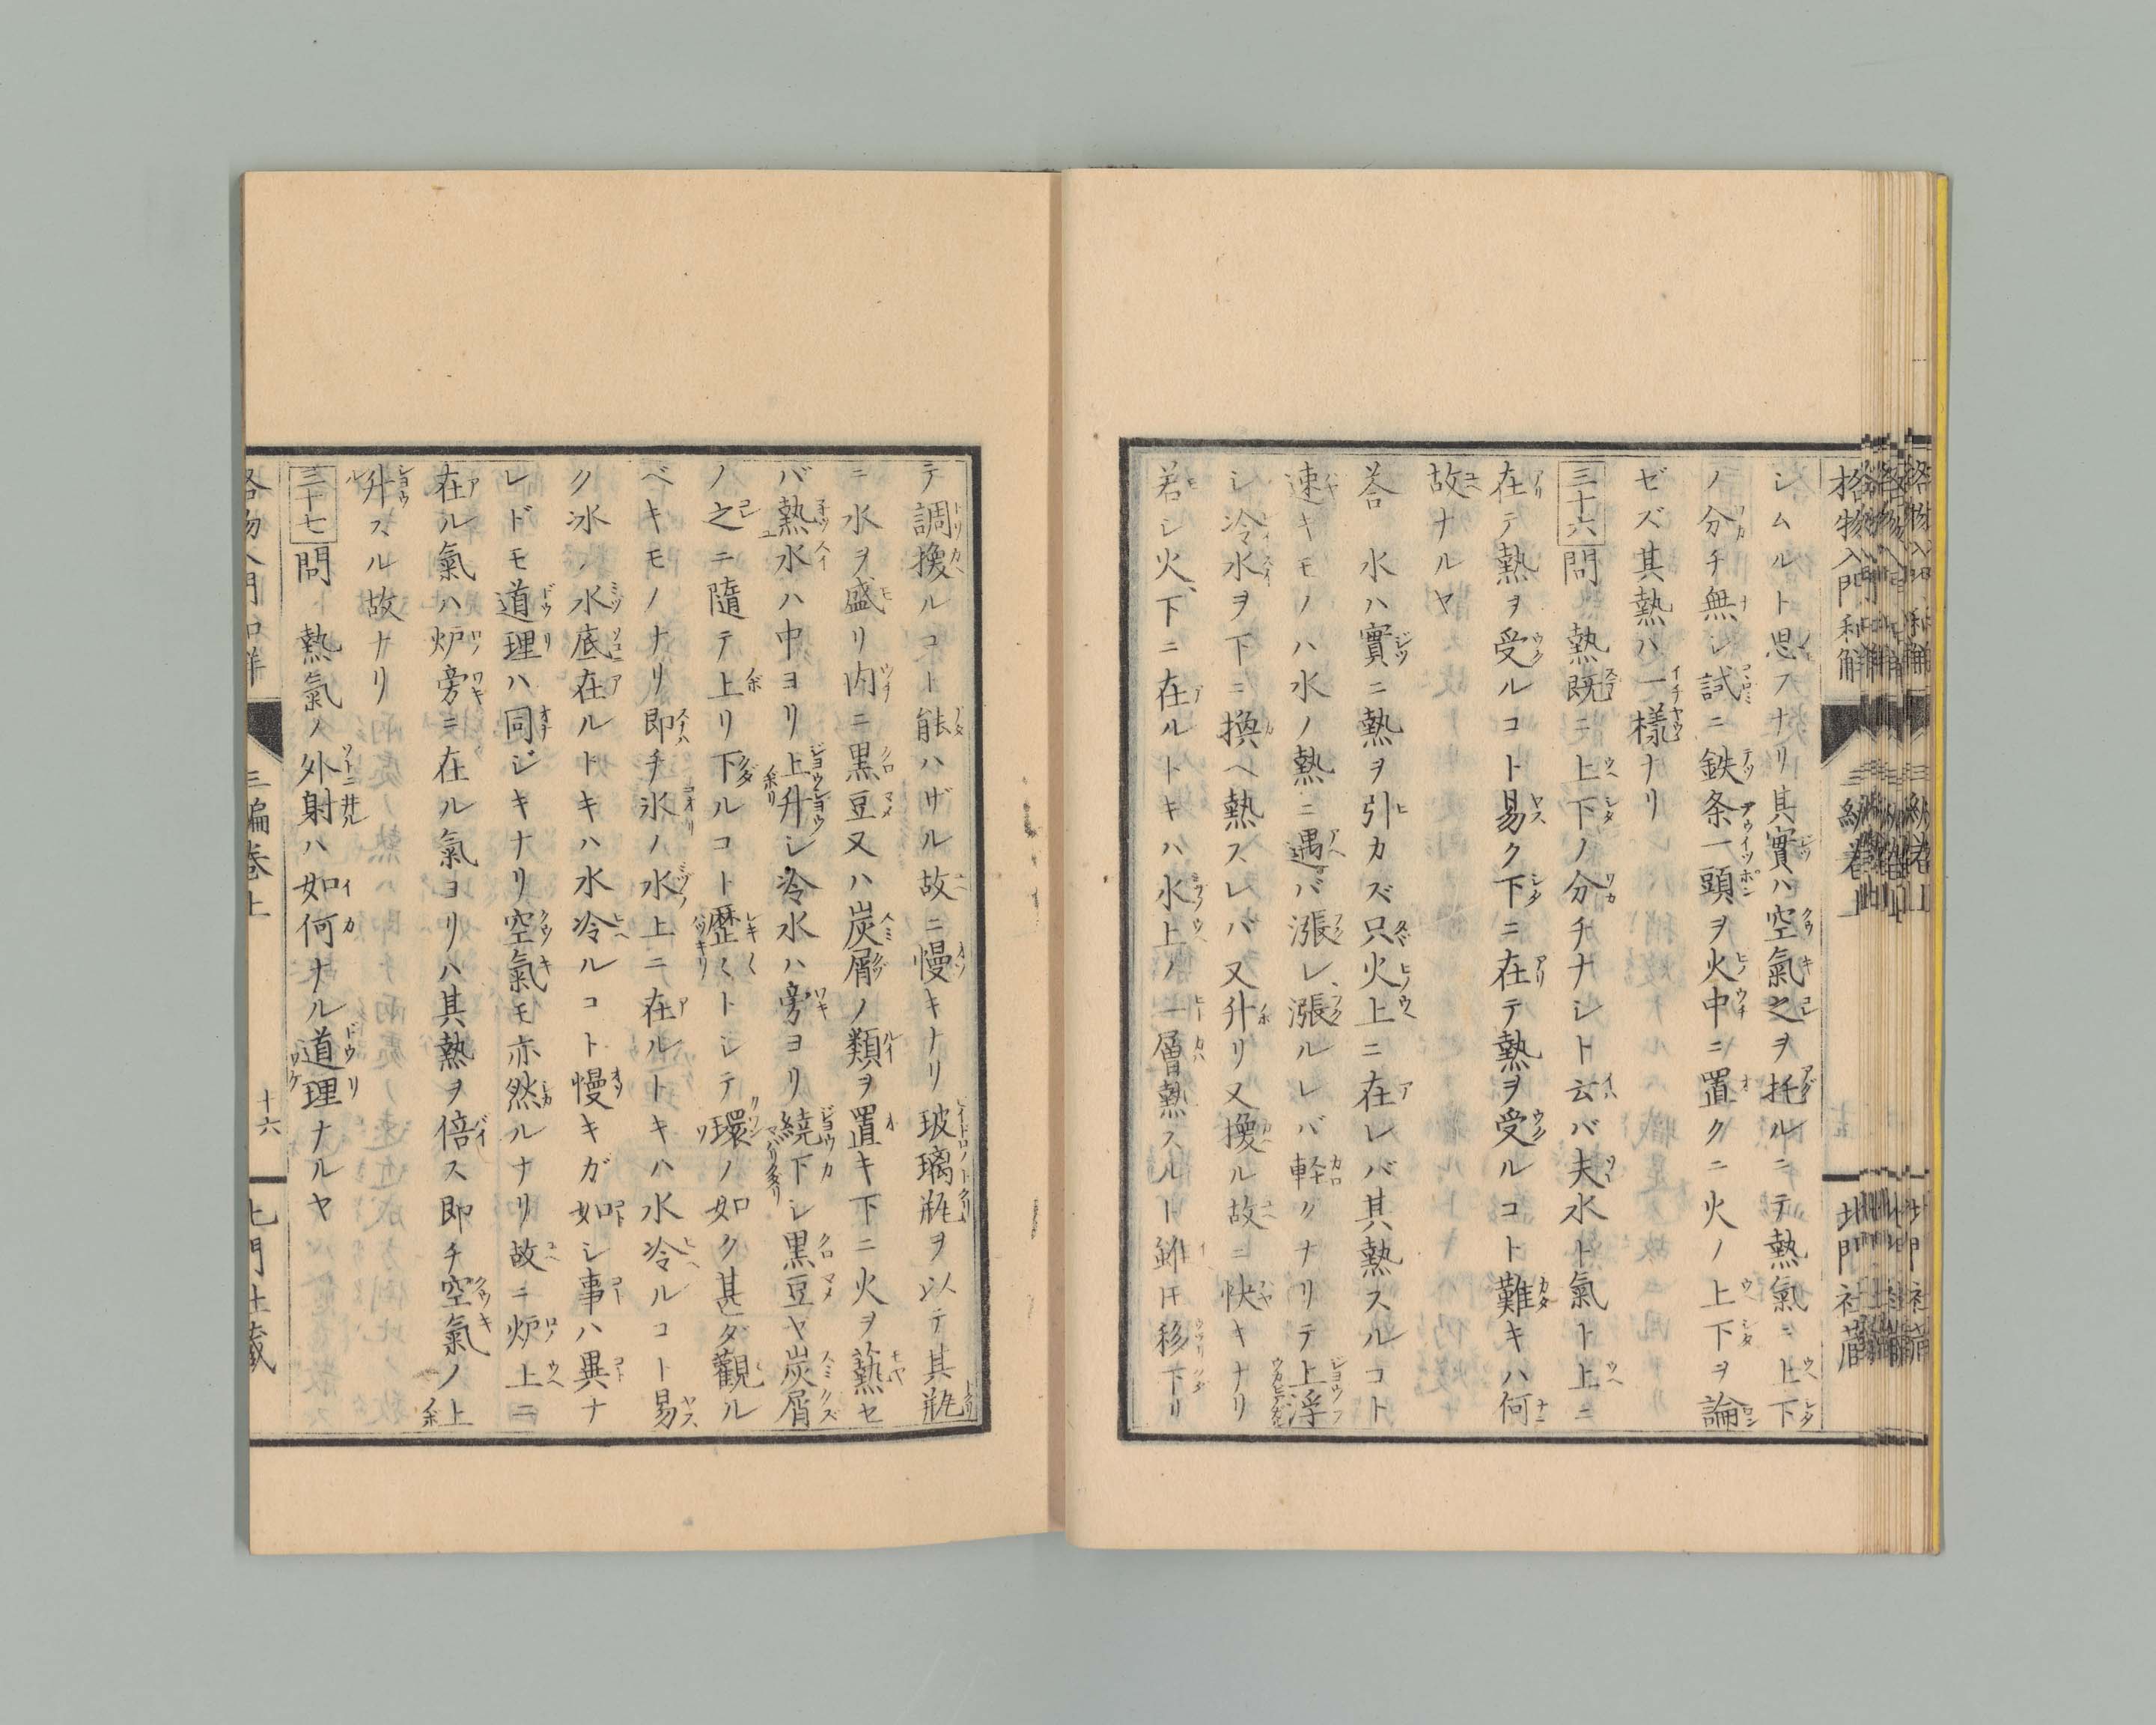 格物入門和解 三編卷上 北門社藏
シムルト思フナリ其實ハ空氣之ヲ托ルニテ熱氣ニ上下
ノ分チ無シ試ニ鉄条一頭ヲ火中ニ置クニ火ノ上下ヲ論
ゼズ其熱ハ一樣ナリ
三十六 問 熱既ニ上下ノ分チナシト云バ夫水ト氣ト上ニ
在テ熱ヲ受ルコト易ク下ニ在テ熱ヲ受ルコト難キハ何
故ナルヤ
荅 水ハ實ニ熱ヲ引カズ只火上ニ在レバ其熱スルコト
速キモノハ水ノ熱ニ遇バ漲レ漲ルレバ軽クナリテ上浮
シ冷水ヲ下ニ換ヘ熱スレバ又升リ又換ル故ニ快キナリ
若シ火下ニ在ルトキハ水上ノ一層熱スルト雖𪜈移下リ
テ調換ルコト能ハザル故ニ慢キナリ玻璃瓶ヲ以テ其瓶
ニ水ヲ盛リ内ニ黒豆又ハ炭屑ノ類ヲ置キ下ニ火ヲ爇セ
バ熱水ハ中ヨリ上升シ冷水ハ旁ヨリ繞下シ黒豆ヤ炭屑
ノ之ニ隨テ上リ下ルコト歴〱トシテ環ノ如ク甚ダ觀ル
ベキモノナリ即チ氷ノ水上ニ在ルトキハ水冷ルコト易
ク冰ノ水底在ルトキハ水冷ルコト慢キガ如シ事ハ異ナ
レドモ道理ハ同ジキナリ空氣モ亦然ルナリ故ニ炉上ニ
在ル氣ハ炉旁ニ在ル氣ヨリハ其熱ヲ倍ス即チ空氣ノ上
升スル故ナリ
三十七 問 熱氣ノ外射ハ如何ナル道理ナルヤ
格物入門和解 三編卷上 十六 北門社藏